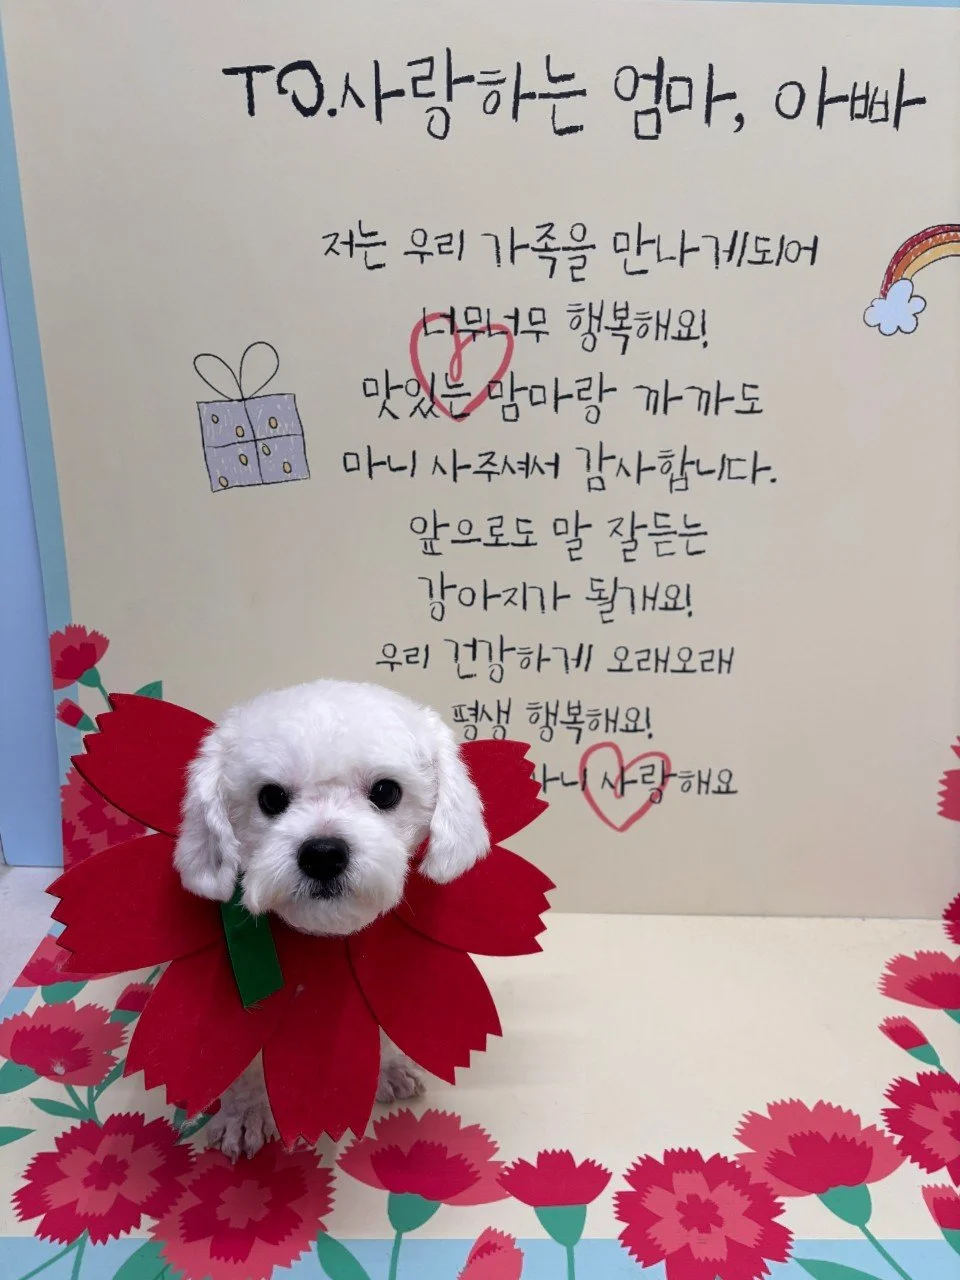 TO.사랑하는 엄마, 아빠
저는 우리 가족을 만나게되어
너무너무 행복해요!
맛있는 맘마랑 까까도
마니 사주셔서 감사합니다.
앞으로도 말 잘듣는
강아지가 될개요!
우리 건강하게 오래오래
평생 행복해요!
마니 사랑해요